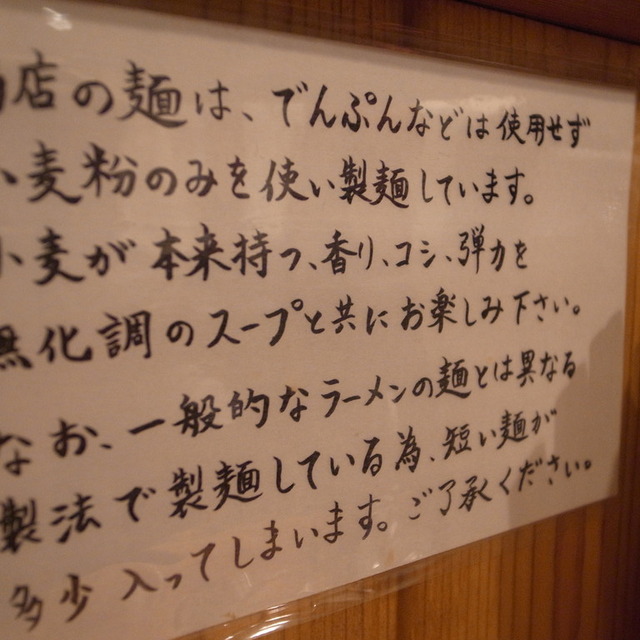 店の麺は、でんぷんなどは使用せず
小麦粉のみを使い製麺しています。
小麦が本来持つ、香り、コシ、弾力を
無化調のスープと共にお楽しみ下さい。
なお、一般的なラーメンの麺とは異なる
製法で製麺している為、短い麺が
多少入ってしまいます。ご了承ください。